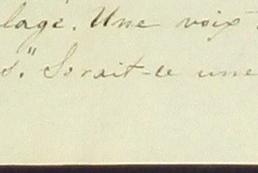 lage. Une voix
s." Serait-ce une